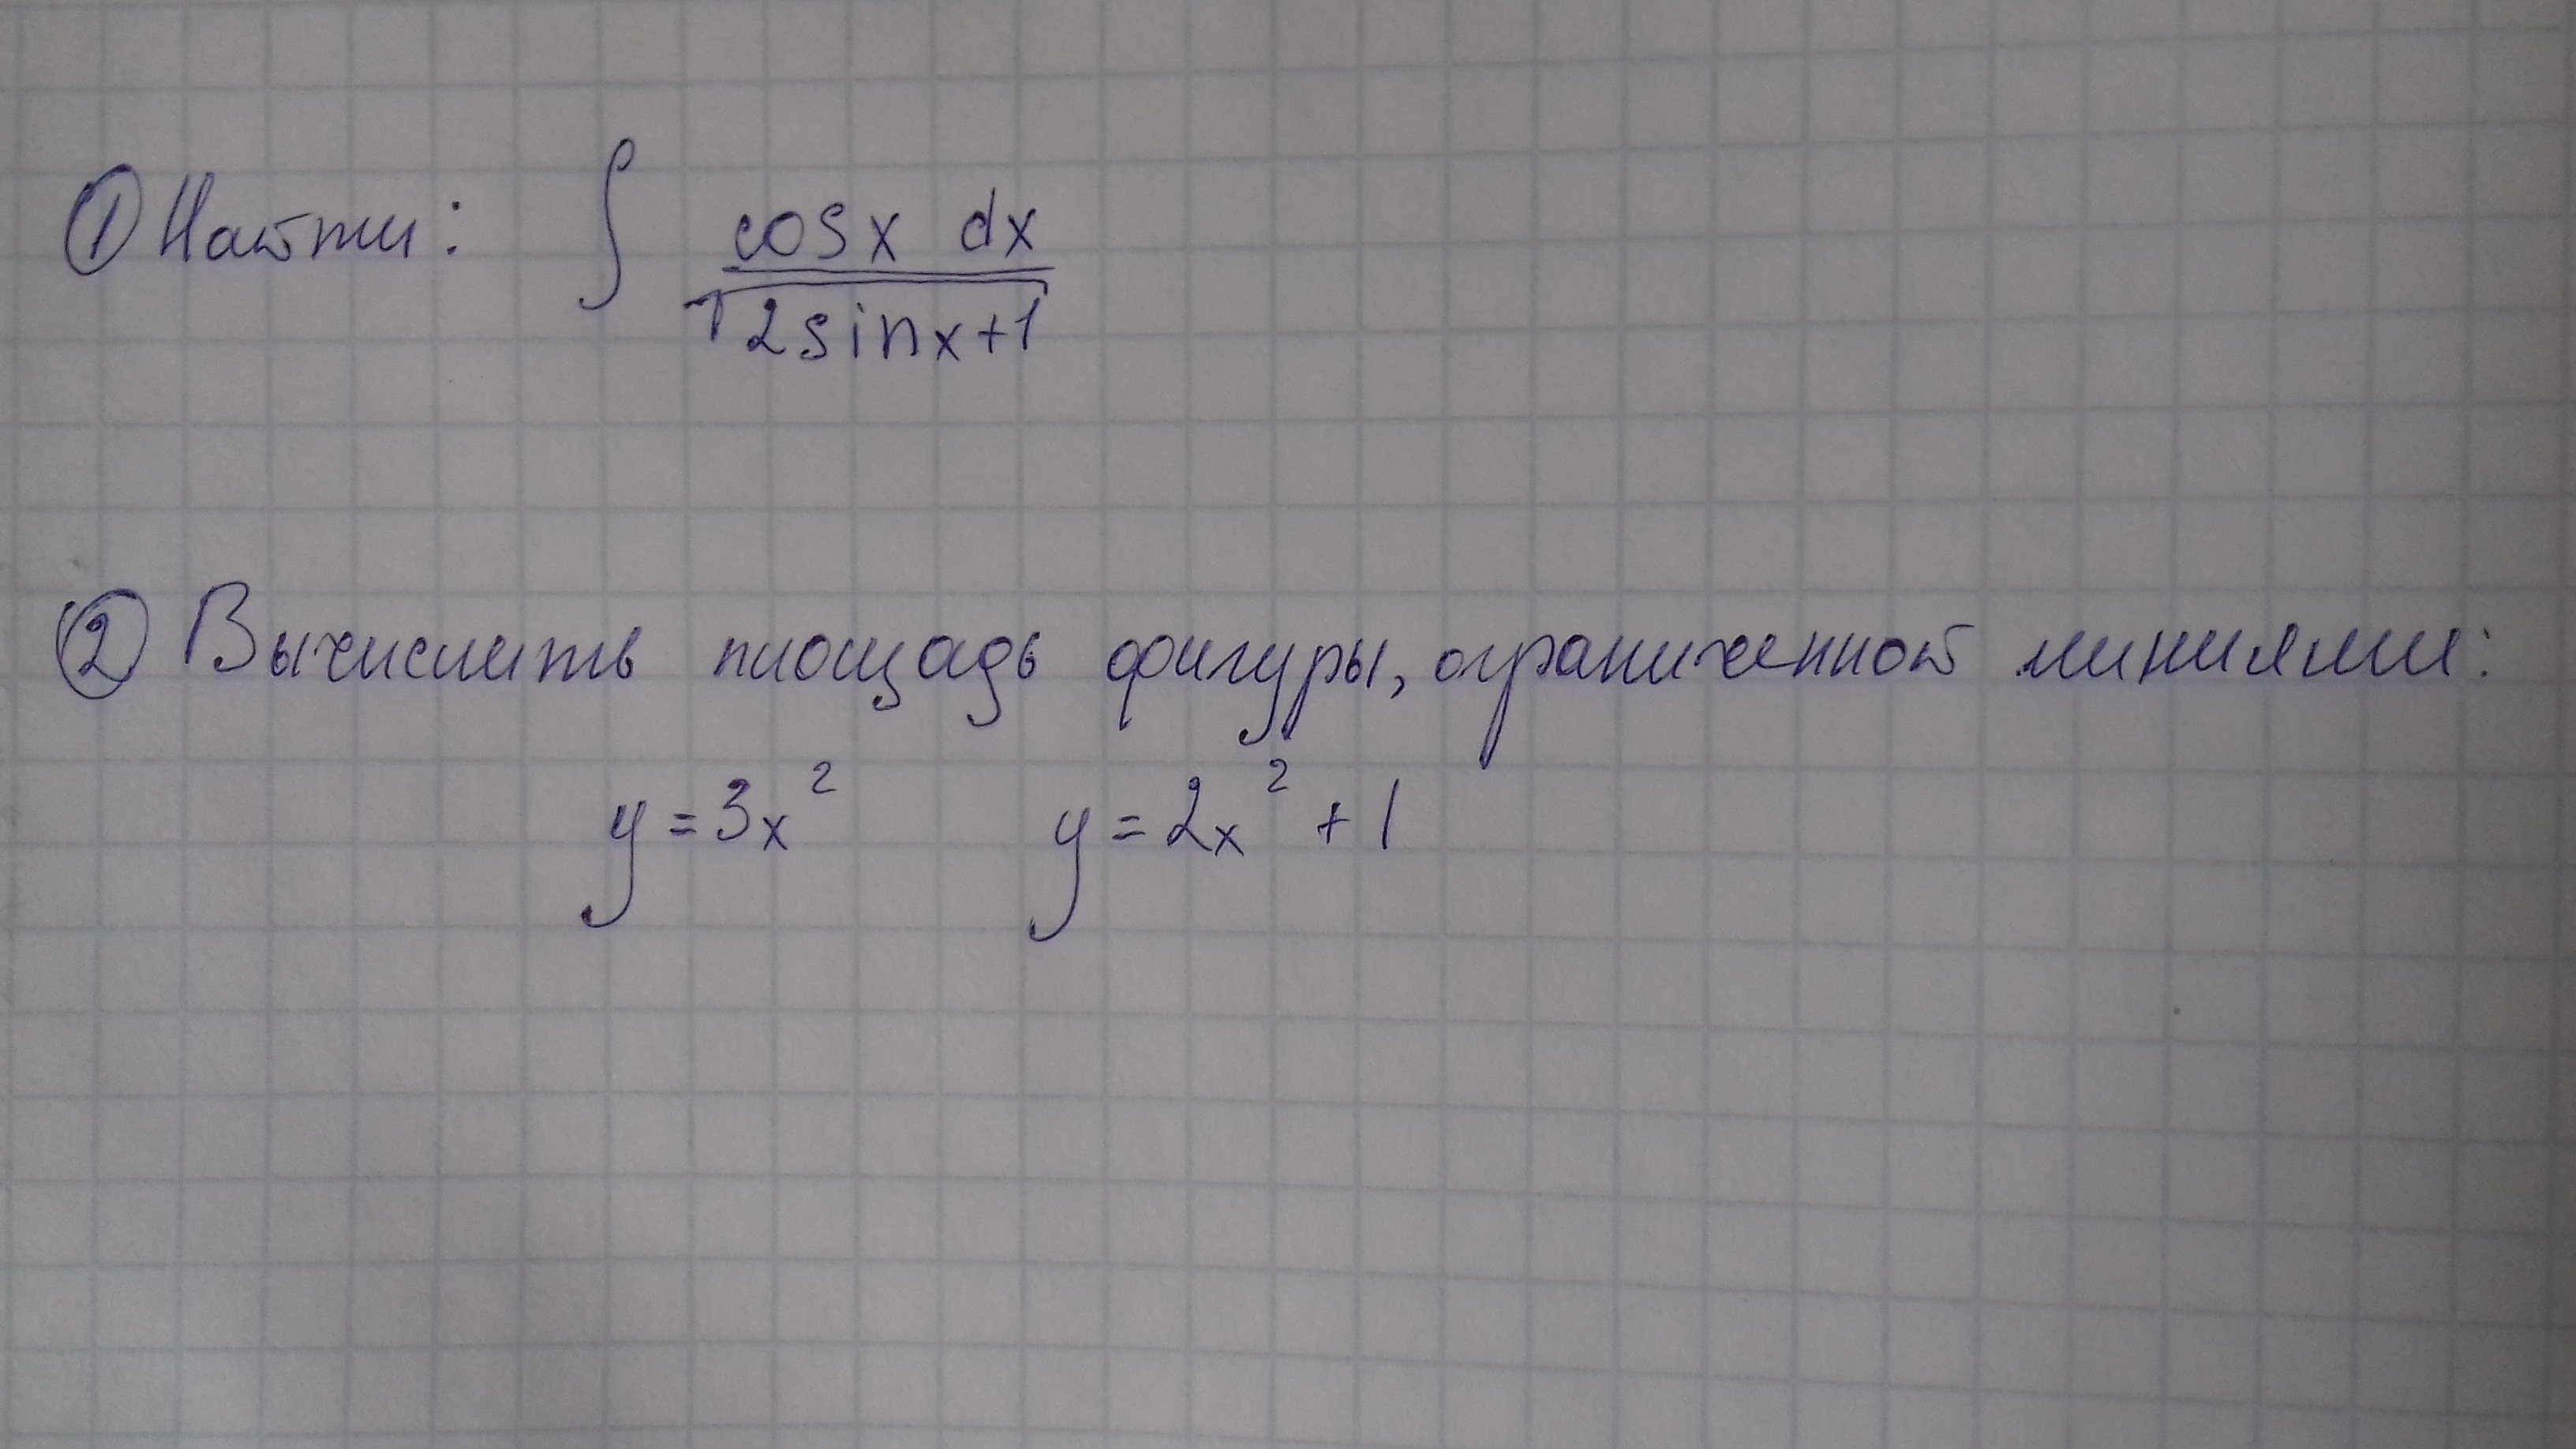 ① Найти: ∫ cosx dx / √2sinx+1
② Вычислить площадь фигуры, ограниченной линиями:
y=3x² y=2x²+1